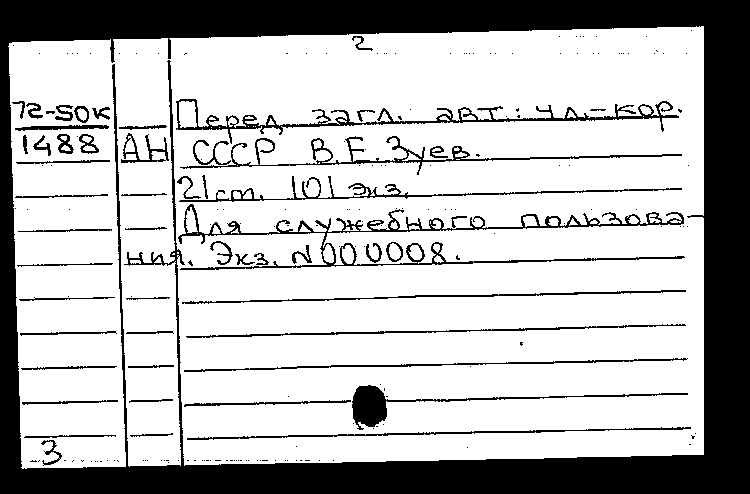 2
72-50к Перед загл. авт.: чл.-кор.
1488 АН СССР В.Е.Зуев.
21 cm. 101 экз.
Для служебного пользова-
ния. Экз. N000008.
3